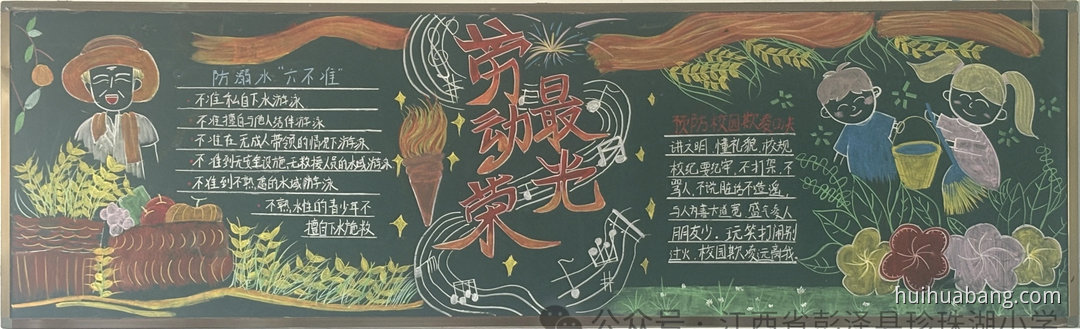 防溺水“六不准”
·不准私自下水游泳
·不准擅自与他人结伴游泳
·不准在无成人带领的情况下游泳
·不准到无安全设施、无救援人员的水域游泳
·不准到不熟悉的水域游泳
·不熟水性的青少年不
擅自下水施救
劳动最光荣
预防校园欺凌口诀
讲文明，懂礼貌，校规
校纪要记牢，不打架，不
骂人，不说脏话不造谣，
与人为善大道宽，盛气凌人
朋友少，玩笑打闹别
过火，校园欺凌远离我。
huihuabang.com
公众号·江西省彭泽县珍珠湖小学